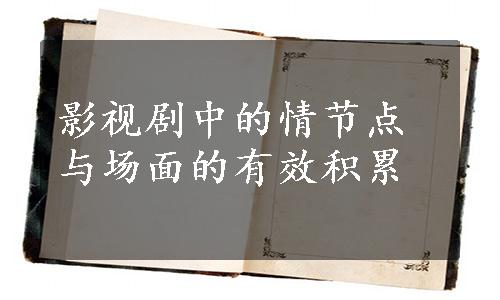 影视剧中的情节点
与场面的有效积累